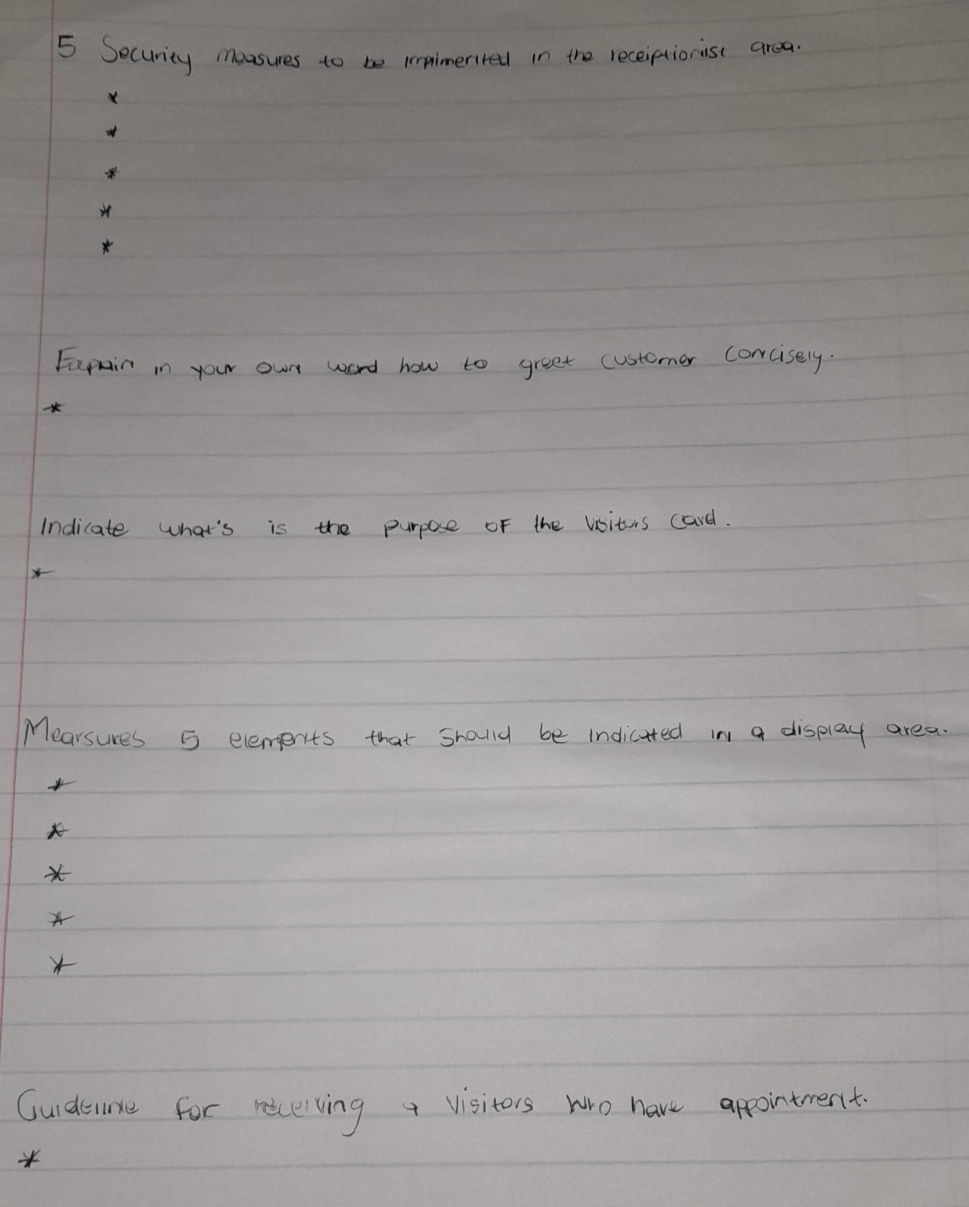 5 Security measures to be impimented in the receiptionist area.
*
*
*
*
*
Explain in your own word how to greet customer concisely.
*
Indicate what's is the purpose of the visitors card.
*
Mearsures 5 elements that should be indicated in a display area.
*
*
*
*
*
Guideline for receiving a visitors who have appointment.
*